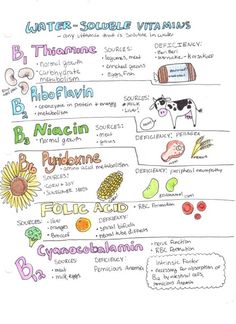 WATER-SOLUBLE VITAMINS
- any vitamin that is soluble in water
B1 Thiamine
- Normal growth
- Carbohydrate metabolism
SOURCES:
- legumes, meat
- enriched grains
- Eggs, Fish
DEFICIENCY:
- Beri Beri
- Wernicke - Korsakoff
B2 Riboflavin
- coenzymes in protein + energy metabolism
SOURCES:
- MILK
- Liver
B3 Niacin
- Normal growth
SOURCES:
- meat
- grains
DEFICIENCY: PELLAGRA
B6 Pyridoxine
- amino acid metabolism
SOURCES:
- corn + soy
- sunflower seeds
DEFICIENCY: peripheral neuropathy
FOLIC ACID
- RBC Formation
SOURCES:
- liver
- oranges
- Broccoli
DEFICIENCY:
- spinal bifida
- neural tube defects
B12 Cyanocobalamin
- nerve function
- RBC Formation
SOURCES:
- meat
- milk, eggs
DEFICIENCY:
Pernicious Anemia
Intrinsic Factor
- necessary for absorption of B12 by intestinal cells